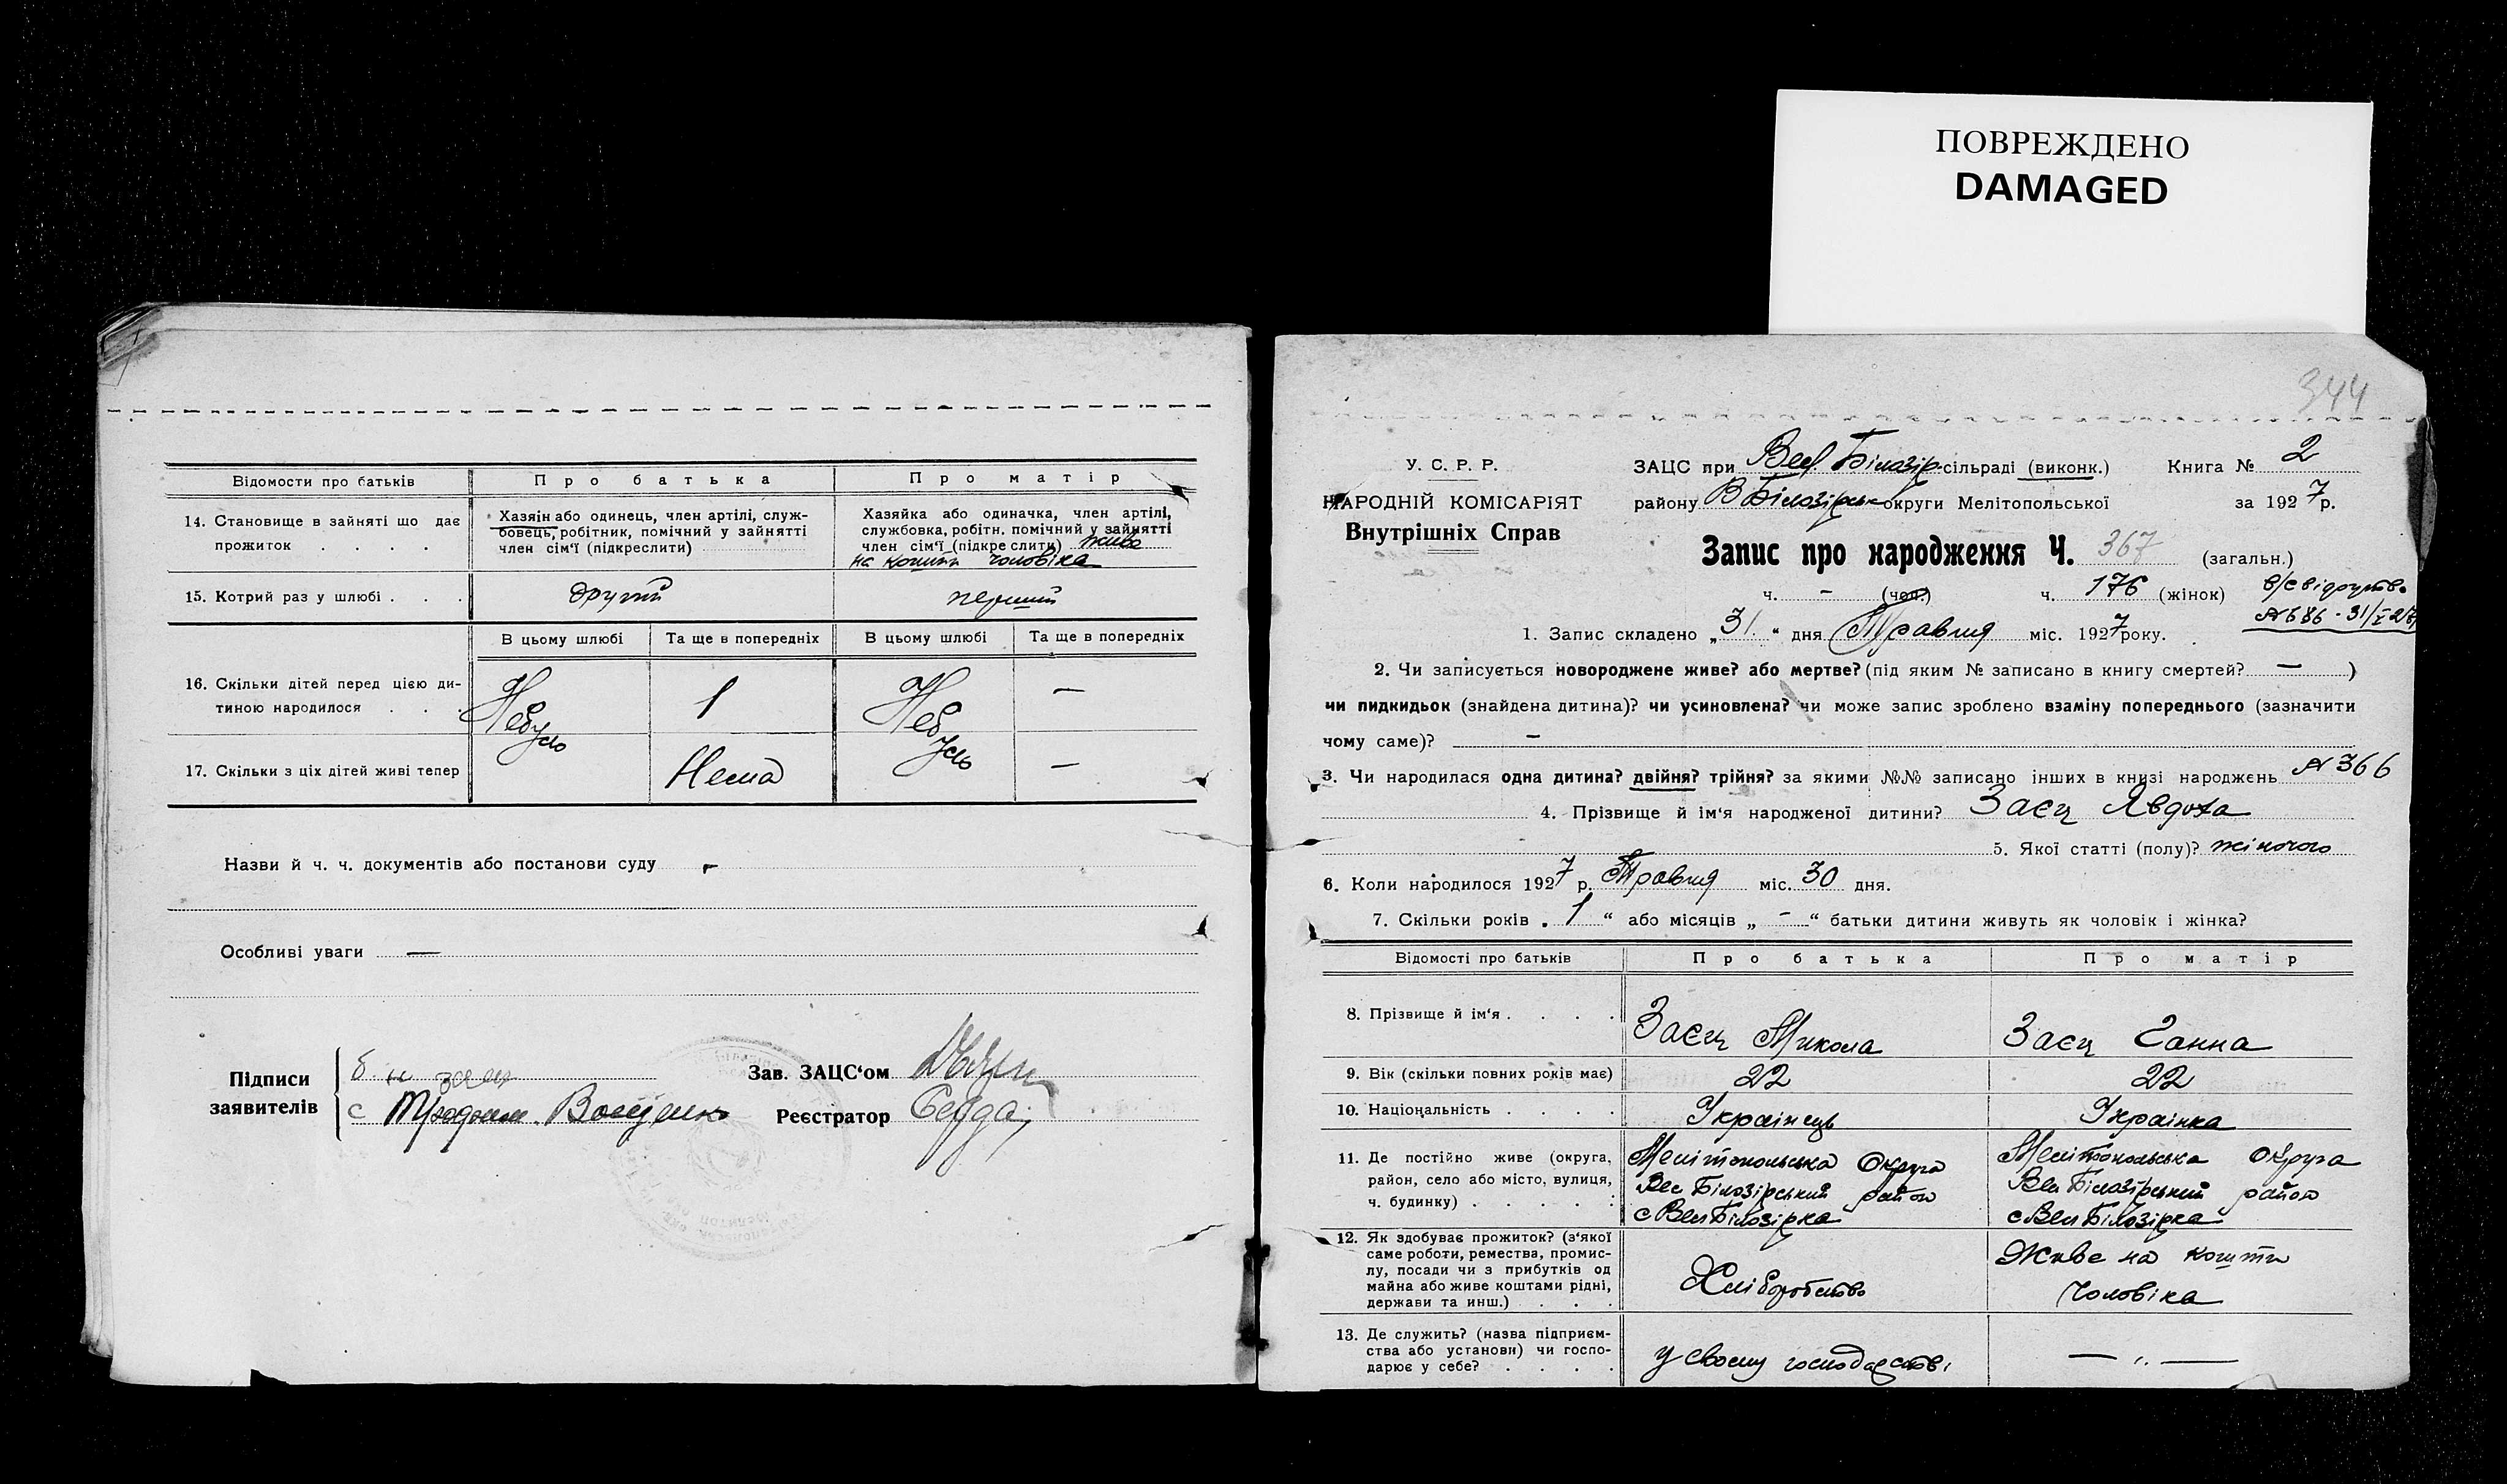 ПОВРЕЖДЕНО
DAMAGED
Відомости про батьків
Про батька
Про матір
14. Становище в зайняті що дає прожиток . . . .
Хазяін або одинець, член артілі, служ-
бовець, робітник, помічний у зайнятті
член сім'ї (підкреслити)
Хазяйка або одиначка, член артілі,
службовка, робітн. помічний у зайнятті
член сім'ї (підкреслити) живе
на кошти чоловіка
15. Котрий раз у шлюбі . . .
другий
перший
В цьому шлюбі
Та ще в попередніх
В цьому шлюбі
Та ще в попередніх
16. Скільки дітей перед цією ди-
тиною народилося . . .
Небуло
1
Небуло
—
17. Скільки з ціх дітей живі тепер
Нема
—
Назви й ч. ч. документів або постанови суду -
Особливі уваги —
Підписи
заявителів
Зав. ЗАЦС'ом
Реєстратор Середа
344
У. С. Р. Р.
НАРОДНІЙ КОМІСАРІЯТ
Внутрішніх Справ
ЗАЦС при Вел. Білозір. сільраді (виконк.)
Книга № 2
району В Білозірськ округи Мелітопольської
за 1927 р.
Запис про народження Ч. 367 (загальн.)
ч. – (чол.) ч. 176 (жінок)
№ 686
1. Запис складено „31.“ дня Травня міс. 1927 року.
2. Чи записується новороджене живе? або мертве? (під яким № записано в книгу смертей? — )
чи пидкидьок (знайдена дитина)? чи усиновлена? чи може запис зроблено взаміну попереднього (зазначити
чому саме)? –
3. Чи народилася одна дитина? двійня? трійня? за якими №№ записано інших в книзі народжень № 366
4. Прізвище й ім'я народженої дитини? Заєц Явдоха
5. Якої статті (полу)? жіночого
6. Коли народилося 1927 р. Травня міс. 30 дня.
7. Скільки років „1“ або місяців „ – “ батьки дитини живуть як чоловік і жінка?
Відомості про батьків
Про батька
Про матір
8. Прізвище й ім'я . . . .
Заєц Микола
Заєц Ганна
9. Вік (скільки повних років має)
22
22
10. Національність . . . .
Українець
Українка
11. Де постійно живе (округа,
район, село або місто, вулиця,
ч. будинку) . . . . .
Мелітопольська Округа
Вел Білозірський район
с Вел Білозірка
Мелітопольська Округа
Вел Білозірський район
с Вел Білозірка
12. Як здобуває прожиток? (з'якої
саме роботи, ремества, промис-
лу, посади чи з прибутків од
майна або живе коштами рідні,
держави та инш.) . . .
Хліборобство
Живе на кошти
Чоловіка
13. Де служить? (назва підприєм-
ства або установи) чи госпо-
дарює у себе? . . . .
у своему господарстві
— „ —